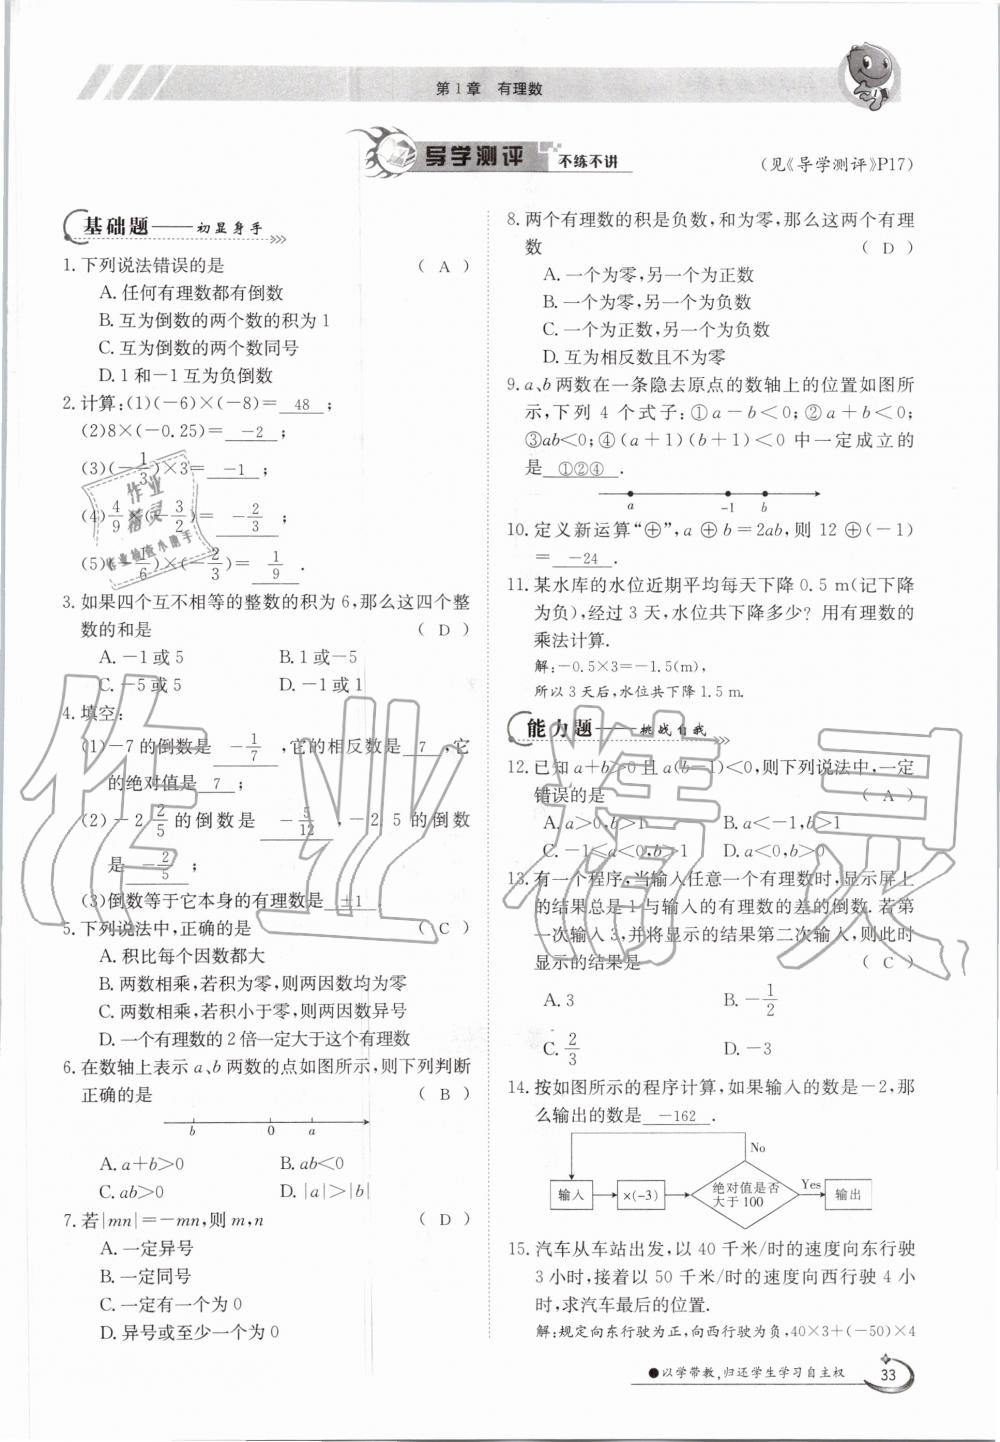 第1章 有理数
导学测评 不练不讲
(见《导学测评》P17)
基础题——初显身手
1.下列说法错误的是 ( A )
A.任何有理数都有倒数
B.互为倒数的两个数的积为1
C.互为倒数的两个数同号
D.1和-1互为负倒数
2.计算:(1)(-6)×(-8)= 48 ;
(2)8×(-0.25)= -2 ;
(3)(-1/3)×3= -1 ;
(4)4/9×(-3/2)= -2/3 ;
(5)(-1/6)×(-2/3)= 1/9 .
3.如果四个互不相等的整数的积为6,那么这四个整
数的和是 ( D )
A.-1或5 B.1或-5
C.-5或5 D.-1或1
4.填空:
(1)-7的倒数是 -1/7 ,它的相反数是 7 ,它
的绝对值是 7 ;
(2)-2 2/5 的倒数是 -5/12 ,-2.5的倒数
是 -2/5 ;
(3)倒数等于它本身的有理数是 ±1 .
5.下列说法中,正确的是 ( C )
A.积比每个因数都大
B.两数相乘,若积为零,则两因数均为零
C.两数相乘,若积小于零,则两因数异号
D.一个有理数的2倍一定大于这个有理数
6.在数轴上表示a、b两数的点如图所示,则下列判断
正确的是 ( B )
b 0 a
A.a+b>0 B.ab<0
C.ab>0 D.|a|>|b|
7.若|mn|=-mn,则m,n ( D )
A.一定异号
B.一定同号
C.一定有一个为0
D.异号或至少一个为0
8.两个有理数的积是负数,和为零,那么这两个有理
数 ( D )
A.一个为零,另一个为正数
B.一个为零,另一个为负数
C.一个为正数,另一个为负数
D.互为相反数且不为零
9.a、b两数在一条隐去原点的数轴上的位置如图所
示,下列4个式子:①a-b<0;②a+b<0;
③ab<0;④(a+1)(b+1)<0中一定成立的
是 ①②④ .
a -1 b
10.定义新运算“⊕”,a⊕b=2ab,则12⊕(-1)
= -24 .
11.某水库的水位近期平均每天下降0.5 m(记下降
为负),经过3天,水位共下降多少?用有理数的
乘法计算.
解:-0.5×3=-1.5(m),
所以3天后,水位共下降1.5 m.
能力题——挑战自我
12.已知a+b>0且a(b-1)<0,则下列说法中,一定
错误的是 ( A )
A.a>0,b>1 B.a<-1,b>1
C.-1≤a<0,b>1 D.a<0,b>0
13.有一个程序,当输入任意一个有理数时,显示屏上
的结果总是1与输入的有理数的差的倒数.若第
一次输入3,并将显示的结果第二次输入,则此时
显示的结果是 ( C )
A.3 B.-1/2
C.2/3 D.-3
14.按如图所示的程序计算,如果输入的数是-2,那
么输出的数是 -162 .
No
输入 ×(-3) 绝对值是否大于100 Yes 输出
15.汽车从车站出发,以40千米/时的速度向东行驶
3小时,接着以50千米/时的速度向西行驶4小
时,求汽车最后的位置.
解:规定向东行驶为正,向西行驶为负,40×3+(-50)×4
●以学带教,归还学生学习自主权
33
作业精灵
作业
精灵
作业检查小助手